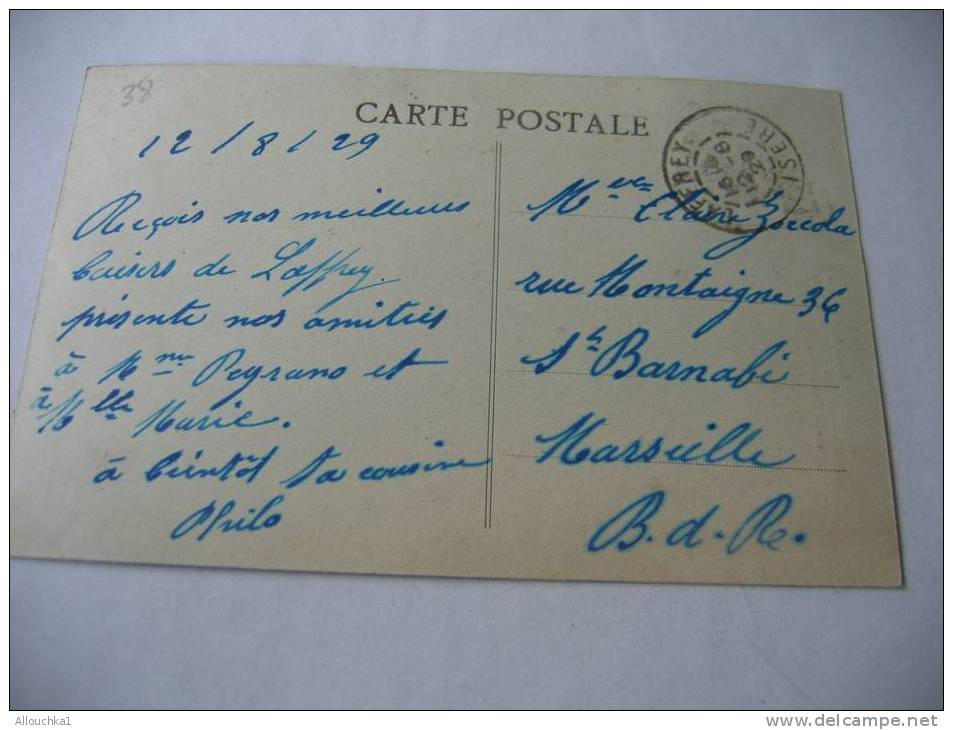 38
CARTE POSTALE
12/8/29
Reçois nos meilleurs
baisers de Laffrey.
présente nos amitiés
à Mme Peyrano et
à Mlle Marie.
à bientôt ta cousine
Philo
LAFFREY
ISERE
Claire Zoccola
rue Montaigne 36
St Barnabé
Marseille
B.d.R.
Allouchka1
www.delcampe.net